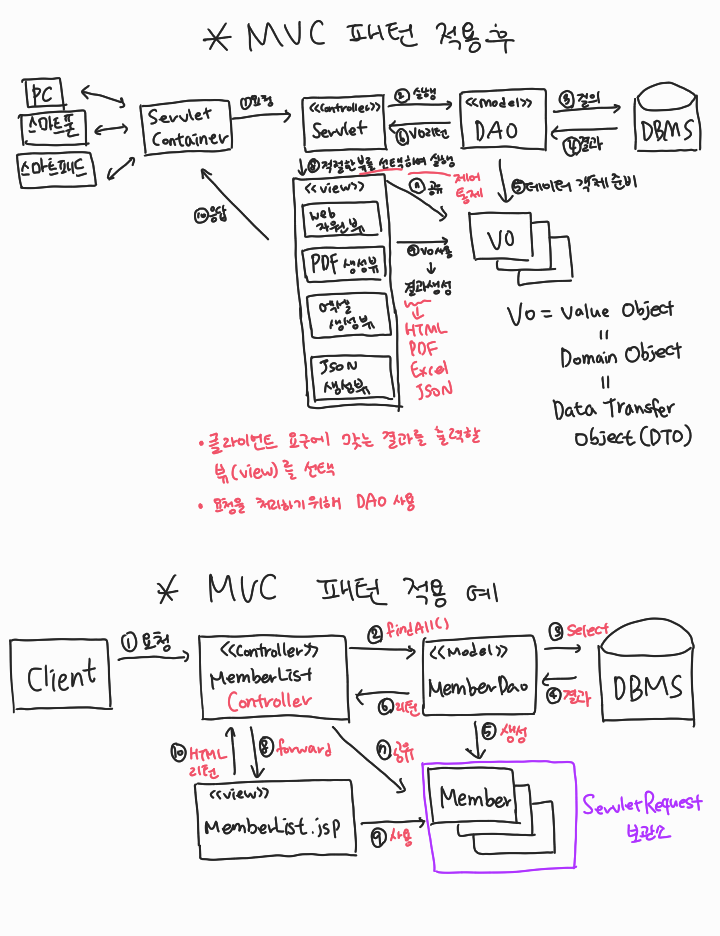 * MVC 패턴 적용 후
PC
스마트폰
스마트패드
Servlet
Container
①요청
<<Controller>>
Servlet
② 실행
⑥ VO리턴
<<Model>>
DAO
③ 질의
④ 결과
DBMS
⑧ 적절한 뷰를 선택하여 실행
제어
통제
⑦ 공유
⑤ 데이터 객체 준비
⑩응답
<<view>>
web
자원 뷰
PDF 생성뷰
엑셀
생성뷰
JSON
생성뷰
⑨VO사용
결과생성
HTML
PDF
Excel
JSON
VO
VO = Value Object
=
Domain Object
=
Data Transfer
Object (DTO)
• 클라이언트 요구에 맞는 결과를 출력할
뷰(view)를 선택
• 요청을 처리하기위해 DAO 사용
* MVC 패턴 적용 예
Client
① 요청
<<Controller>>
MemberList
Controller
② findAll()
⑥ 리턴
<<Model>>
MemberDao
③ Select
④ 결과
DBMS
⑤ 생성
⑩ HTML
리턴
⑧ forward
⑦ 공유
<<view>>
MemberList.jsp
⑨ 사용
Member
ServletRequest
보관소